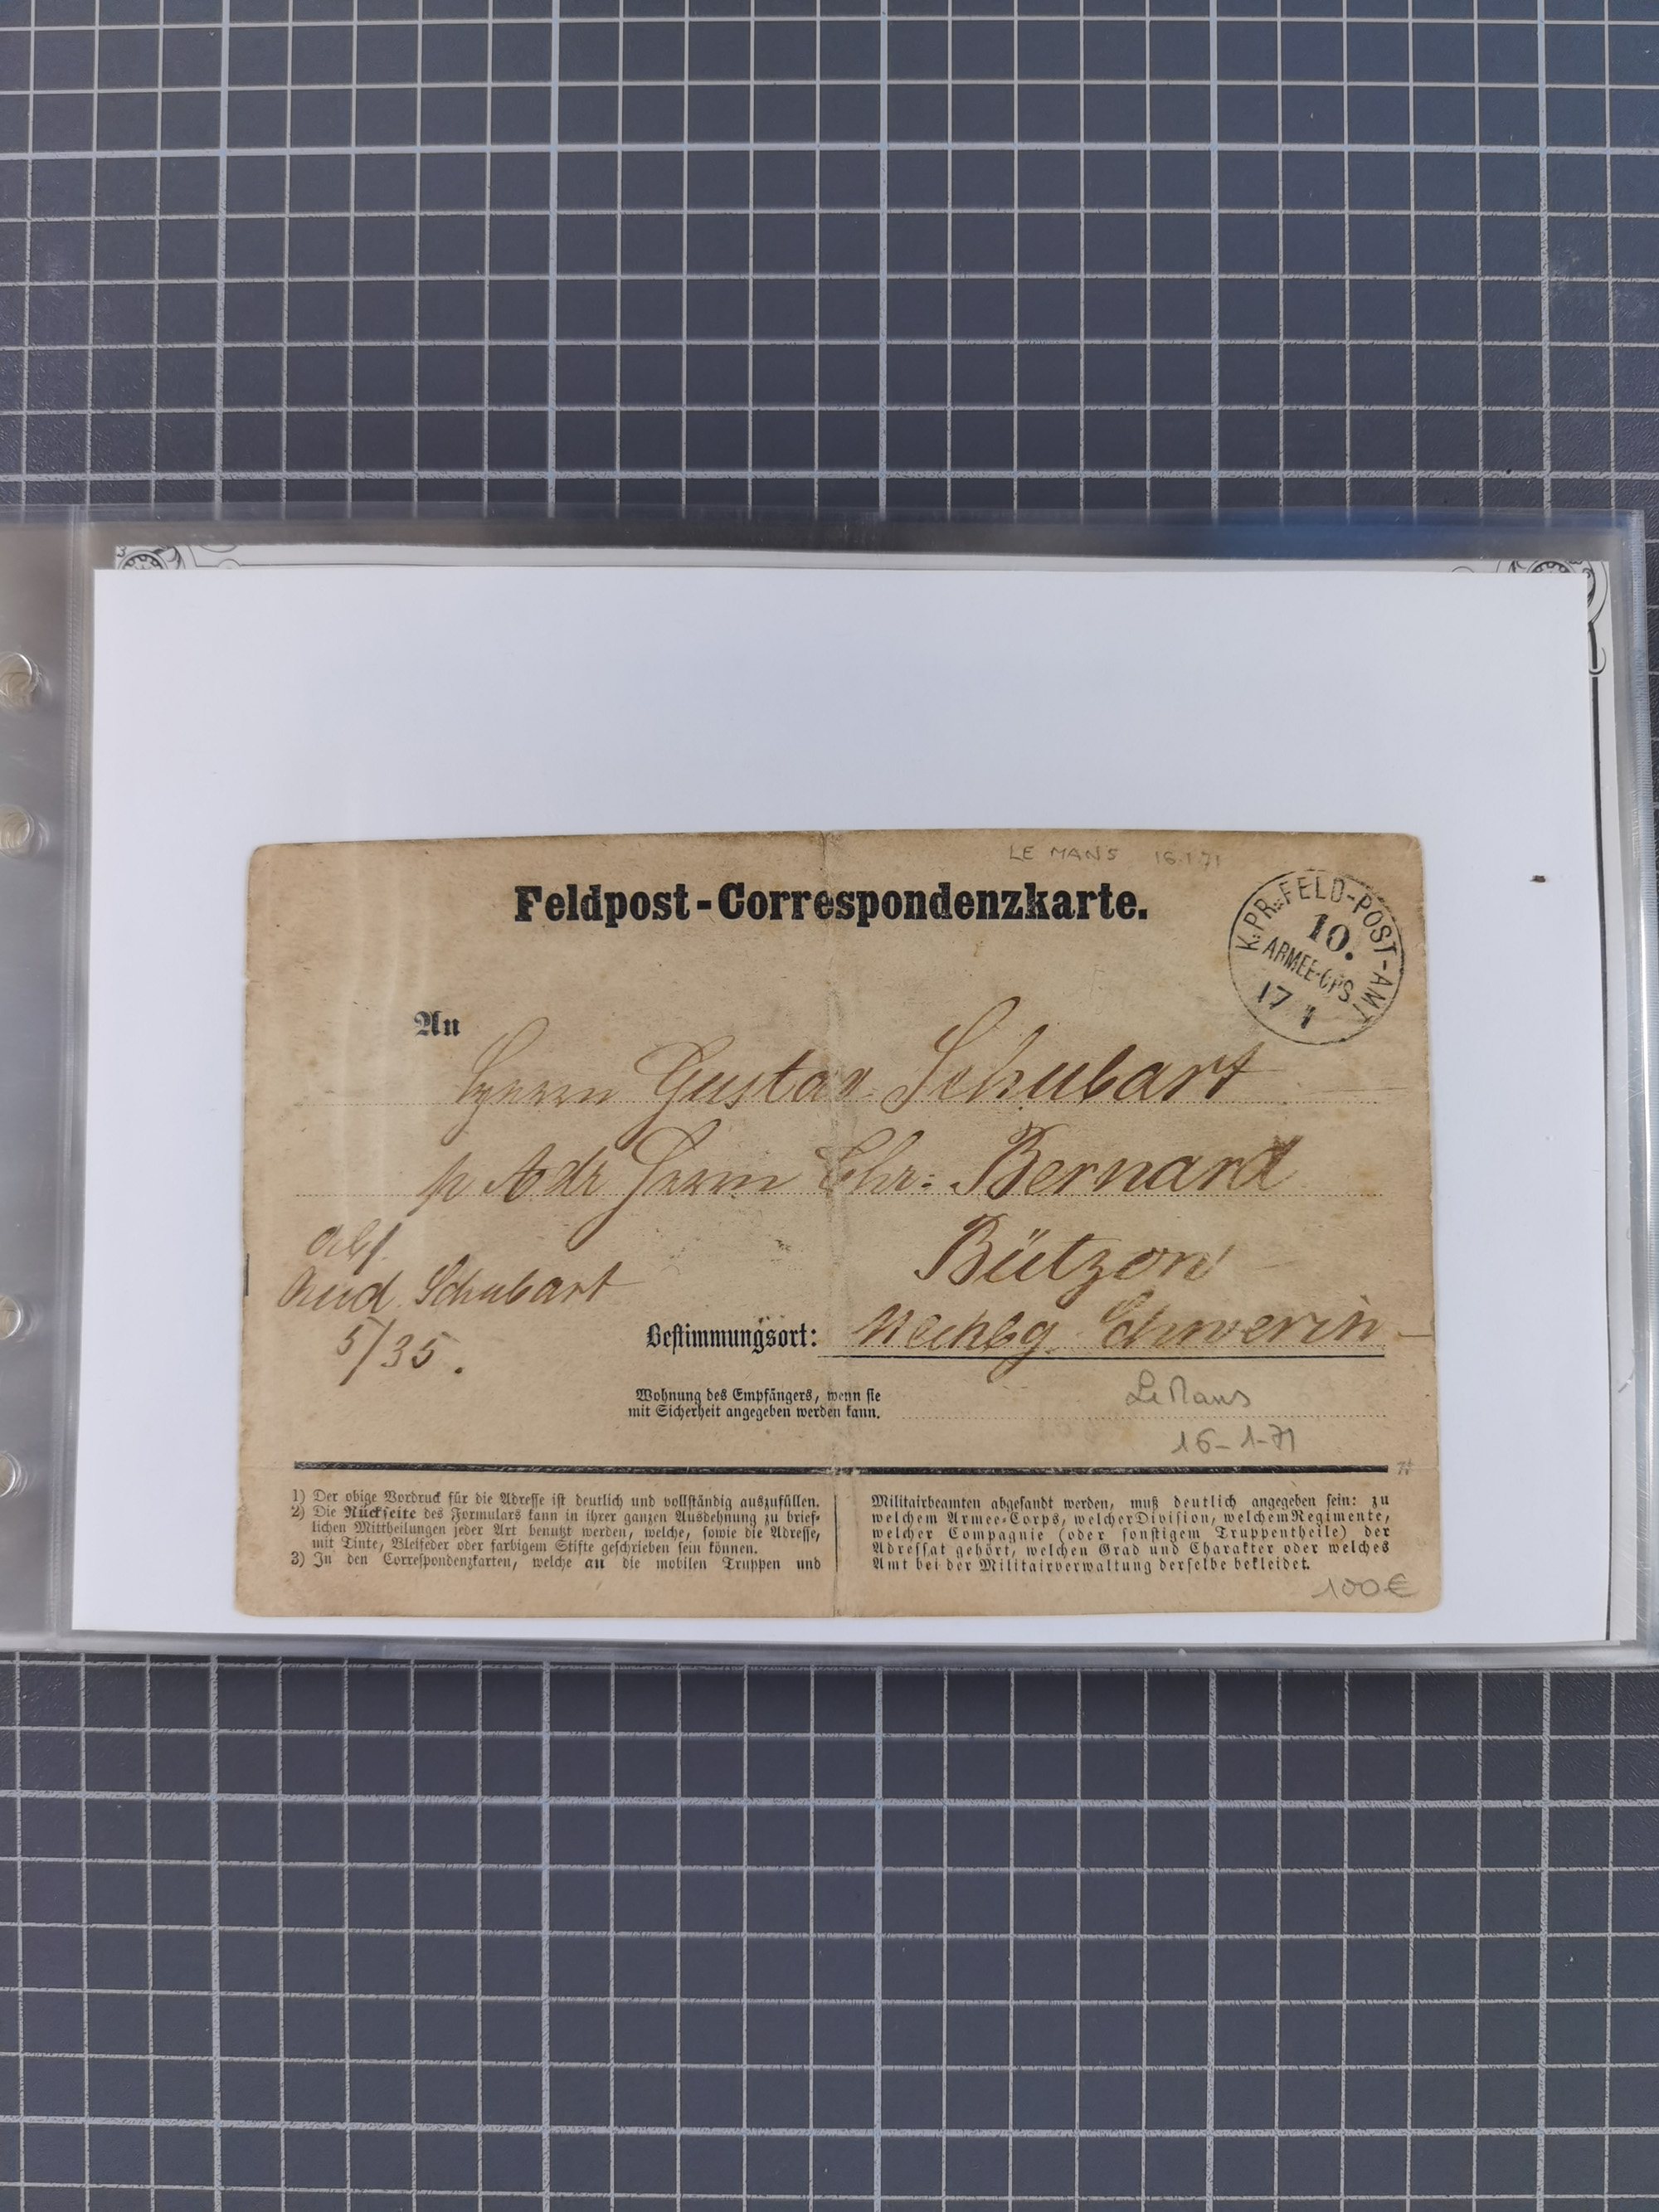 LE MANS 16.1.71
Feldpost-Correspondenzkarte.
K.PR.FELD-POST-AMT
10.
ARMEE-CPS.
17 1
An
Herrn Gustav Schubart
p Adr Herrn Chr: Bernard
Bützow
Abs.
Rud. Schubart
5/35.
Bestimmungsort: Mecklbg. Schwerin
Wohnung des Empfängers, wenn sie
mit Sicherheit angegeben werden kann.
Le Mans
16-1-71
1) Der obige Vordruck für die Adresse ist deutlich und vollständig auszufüllen.
2) Die Rückseite des Formulars kann in ihrer ganzen Ausdehnung zu brief-
lichen Mittheilungen jeder Art benutzt werden, welche, sowie die Adresse,
mit Tinte, Bleifeder oder farbigem Stifte geschrieben sein können.
3) In den Correspondenzkarten, welche an die mobilen Truppen und
Militairbeamten abgesandt werden, muß deutlich angegeben sein: zu
welchem Armee-Corps, welcher Division, welchem Regimente,
welcher Compagnie (oder sonstigem Truppentheile) der
Adressat gehört, welchen Grad und Charakter oder welches
Amt bei der Militairverwaltung derselbe bekleidet.
100€